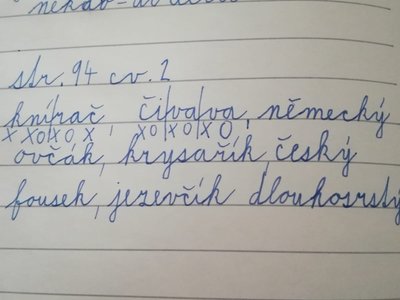 str. 94 cv. 2
knírač, čivava, německý
x xo xo x, xo xo xo
ovčák, krysařík, český
fousek, jezevčík dlouhosrstý